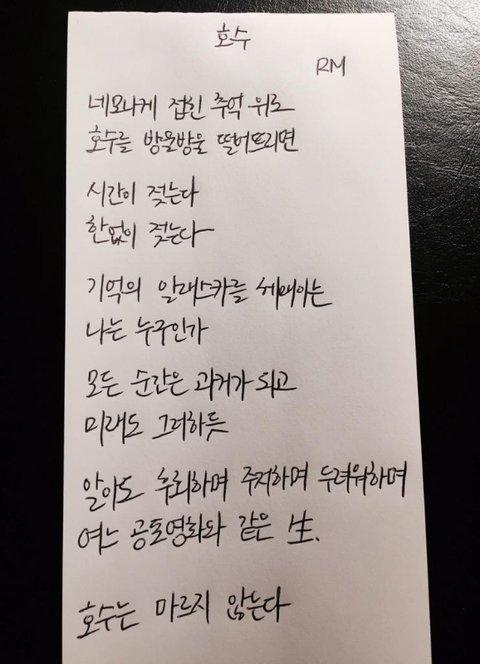 호수
RM
네모나게 접힌 추억 위로
호수를 방울방울 떨어뜨리면
시간이 젖는다
한없이 젖는다
기억의 알래스카를 헤매이는
나는 누구인가
모든 순간은 과거가 되고
미래도 그러하듯
알아도 후회하며 주저하며 두려워하며
여느 공포영화와 같은 生.
호수는 마르지 않는다